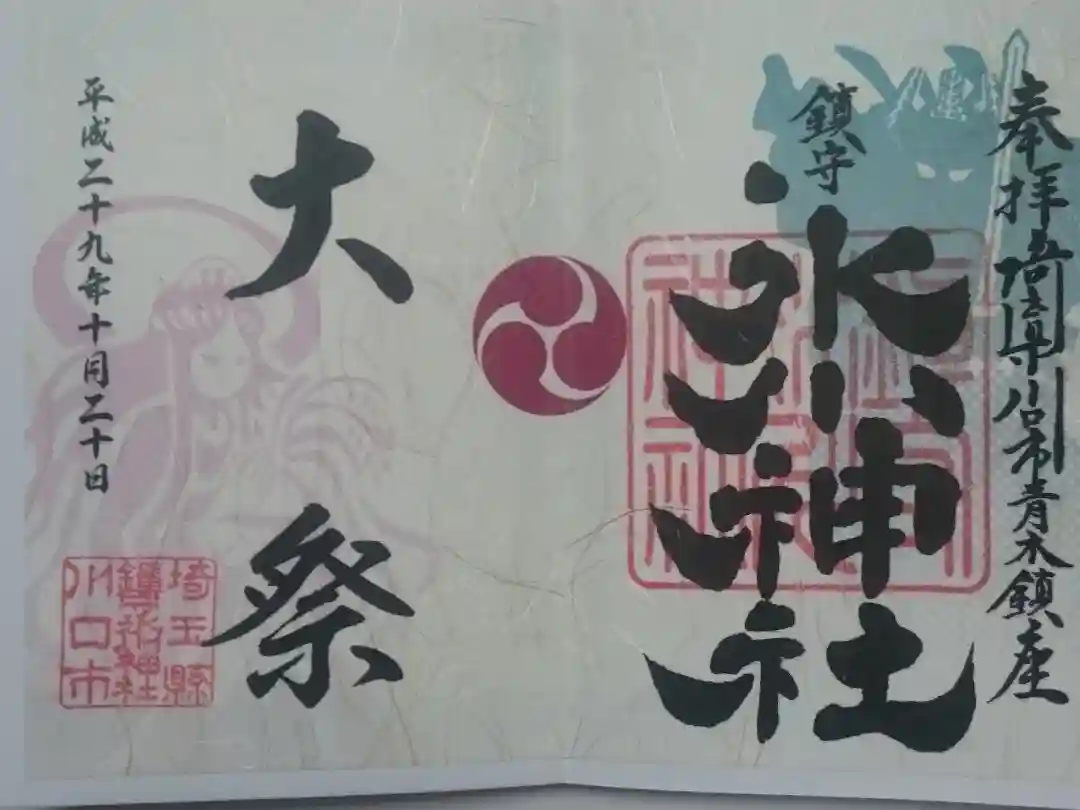 奉拝埼玉県川口市青木鎮座
鎮守
氷川神社
大祭
平成二十九年十月二十日
埼玉縣
鎮守氷川神社
川口市